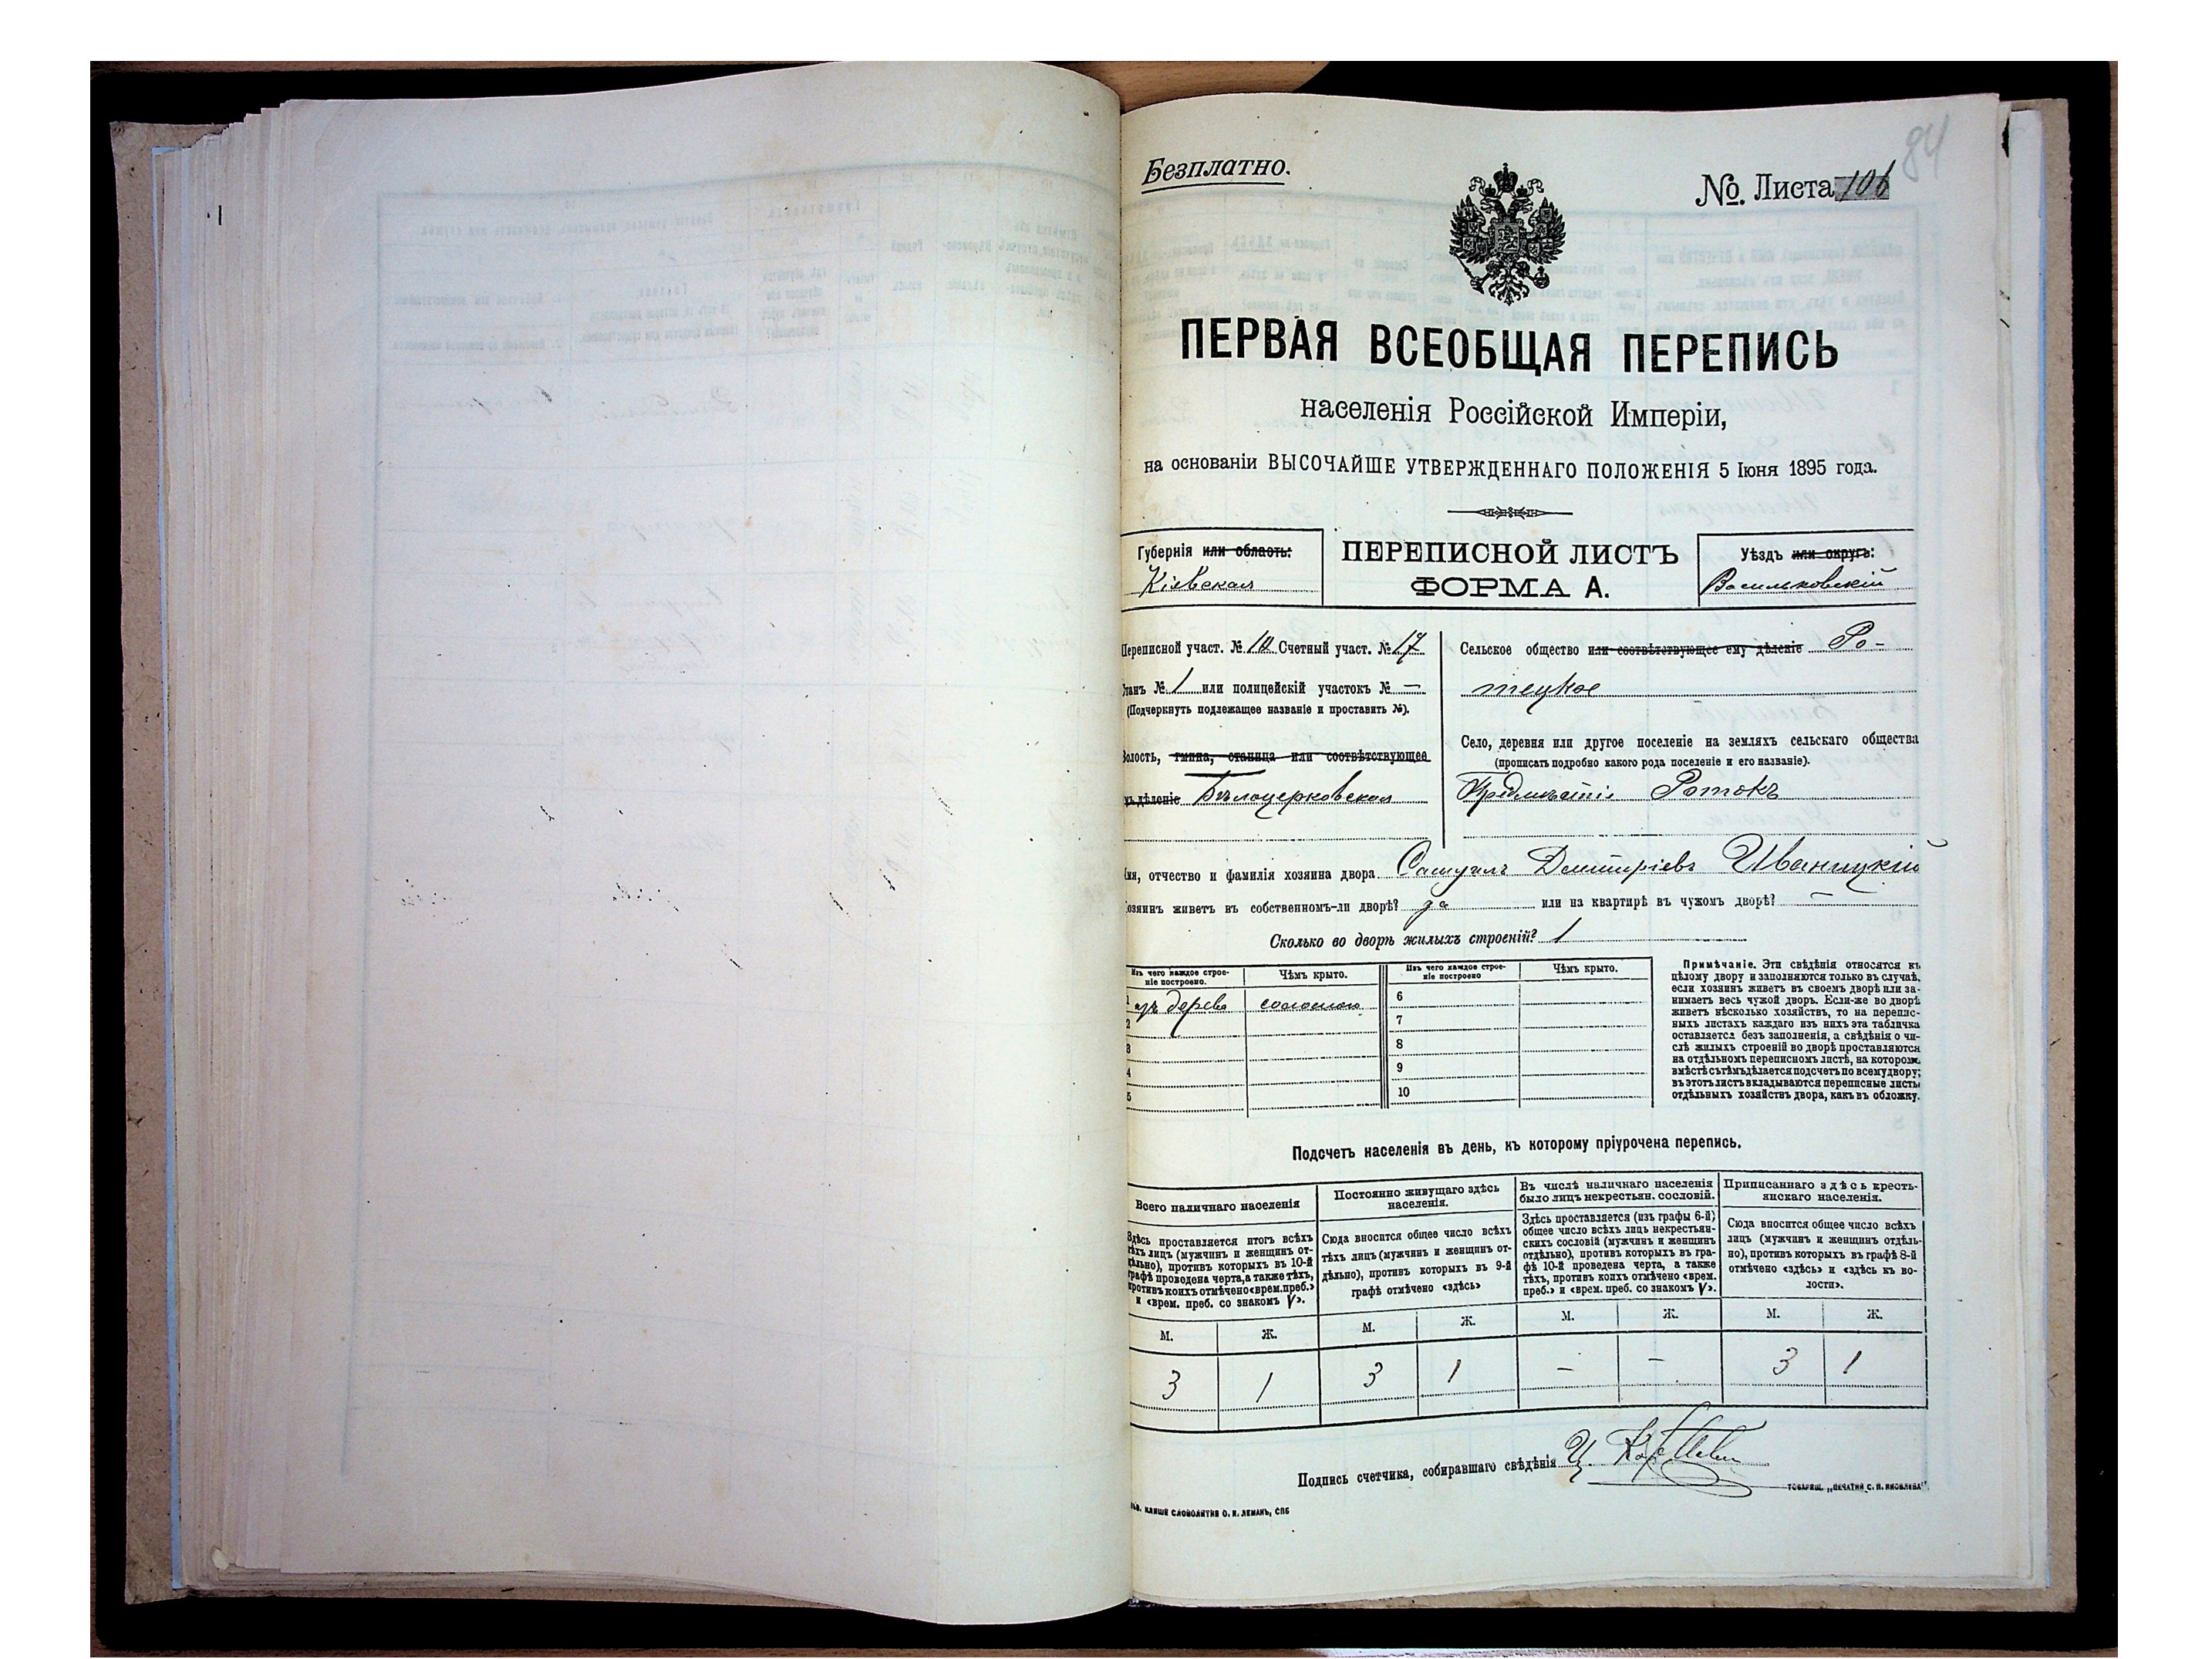 84
Безплатно.
№. Листа 106
ПЕРВАЯ ВСЕОБЩАЯ ПЕРЕПИСЬ
населенія Россійской Имперіи,
на основаніи ВЫСОЧАЙШЕ УТВЕРЖДЕННАГО ПОЛОЖЕНІЯ 5 Іюня 1895 года.
Губернія или область:
Кіевская
ПЕРЕПИСНОЙ ЛИСТЪ
ФОРМА А.
Уѣздъ или округъ:
Васильковскій
Переписной участ. № 10 Счетный участ. № 17
Станъ № 1 или полицейскій участокъ № —
(Подчеркнуть подлежащее названіе и проставить №).
Волость, гмина, станица или соотвѣтствующее
имъ дѣленіе Бѣлоцерковская
Сельское общество или соотвѣтствующее ему дѣленіе Ро-
тецкое
Село, деревня или другое поселеніе на земляхъ сельскаго общества
(прописать подробно какого рода поселеніе и его названіе).
Предмѣстіе Ротокъ
Имя, отчество и фамилія хозяина двора Самуилъ Дмитріевъ Иваницкій
Хозяинъ живетъ въ собственномъ-ли дворѣ? да или на квартирѣ въ чужомъ дворѣ? —
Сколько во дворѣ жилыхъ строеній? 1
Изъ чего каждое строе-
ніе построено.
Чѣмъ крыто.
Изъ чего каждое строе-
ніе построено
Чѣмъ крыто.
1 изъ дерева соломою 6
2 7
3 8
4 9
5 10
Примѣчаніе. Эти свѣдѣнія относятся къ
цѣлому двору и заполняются только въ случаѣ,
если хозяинъ живетъ въ своемъ дворѣ или за-
нимаетъ весь чужой дворъ. Если-же во дворѣ
живетъ нѣсколько хозяйствъ, то на перепис-
ныхъ листахъ каждаго изъ нихъ эта табличка
оставляется безъ заполненія, а свѣдѣнія о чи-
слѣ жилыхъ строеній во дворѣ проставляются
на отдѣльномъ переписномъ листѣ, на которомъ
вмѣстѣ съ тѣмъ дѣлается подсчетъ по всему двору;
въ этотъ листъ вкладываются переписные листы
отдѣльныхъ хозяйствъ двора, какъ въ обложку.
Подсчетъ населенія въ день, къ которому пріурочена перепись.
Всего наличнаго населенія
Здѣсь проставляется итогъ всѣхъ
тѣхъ лицъ (мужчинъ и женщинъ от-
дѣльно), противъ которыхъ въ 10-й
графѣ проведена черта, а также тѣхъ,
противъ коихъ отмѣчено «врем. преб.»
и «врем. преб. со знакомъ V».
Постоянно живущаго здѣсь
населенія.
Сюда вносится общее число всѣхъ
тѣхъ лицъ (мужчинъ и женщинъ от-
дѣльно), противъ которыхъ въ 9-й
графѣ отмѣчено «здѣсь»
Въ числѣ наличнаго населенія
было лицъ некрестьян. сословій.
Здѣсь проставляется (изъ графы 6-й)
общее число всѣхъ лицъ некрестьян-
скихъ сословій (мужчинъ и женщинъ
отдѣльно), противъ которыхъ въ гра-
фѣ 10-й проведена черта, а также
тѣхъ, противъ коихъ отмѣчено «врем.
преб.» и «врем. преб. со знакомъ V».
Приписаннаго здѣсь кресть-
янскаго населенія.
Сюда вносится общее число всѣхъ
лицъ (мужчинъ и женщинъ отдѣль-
но), противъ которыхъ въ графѣ 8-й
отмѣчено «здѣсь» и «здѣсь къ во-
лости».
М. Ж. М. Ж. М. Ж. М. Ж.
3 1 3 1 — — 3 1
Подпись счетчика, собиравшаго свѣдѣнія
ТОВАРИЩ. „ПЕЧАТНЯ С. П. ЯКОВЛЕВА"
КЛИШЕ СЛОВОЛИТНИ О. И. ЛЕМАНЪ, СПБ